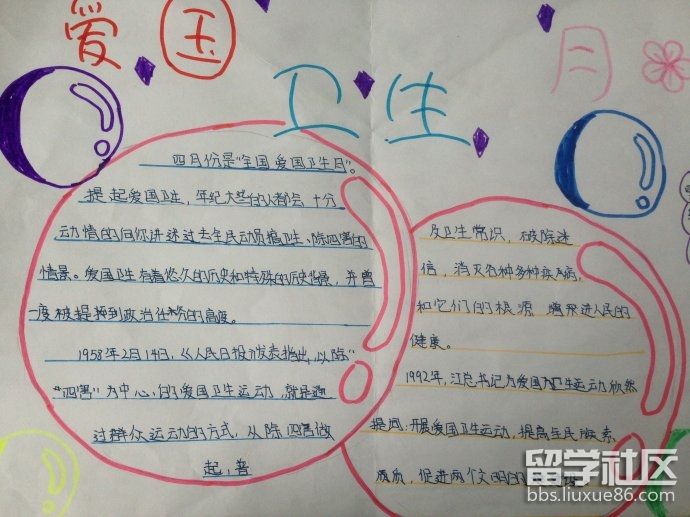 爱国
卫生
月
四月份是"全国爱国卫生月"。
提起爱国卫生,年纪大些的人都会十分
动情的向你讲述过去全民动员搞卫生、除四害的
情景。爱国卫生有着悠久的历史和特殊的历史背景,并曾
一度被提
到政治任务的高度。
1958年2月14日,《人民日报》发表指出,以除"
"四害"为中心,的爱国卫生运动,就是通
过群众运动的方式,从除四害做
起,普
及卫生常识,破除迷
信,消灭各种多种疾病,
和它们的根源,增进人民的
健康。
1992年,江总书记为爱国卫生运动欣然
提词:开展爱国卫生运动,提高全民族素
质,促进两个文明的
留学社区
bbs.liuxue86.com